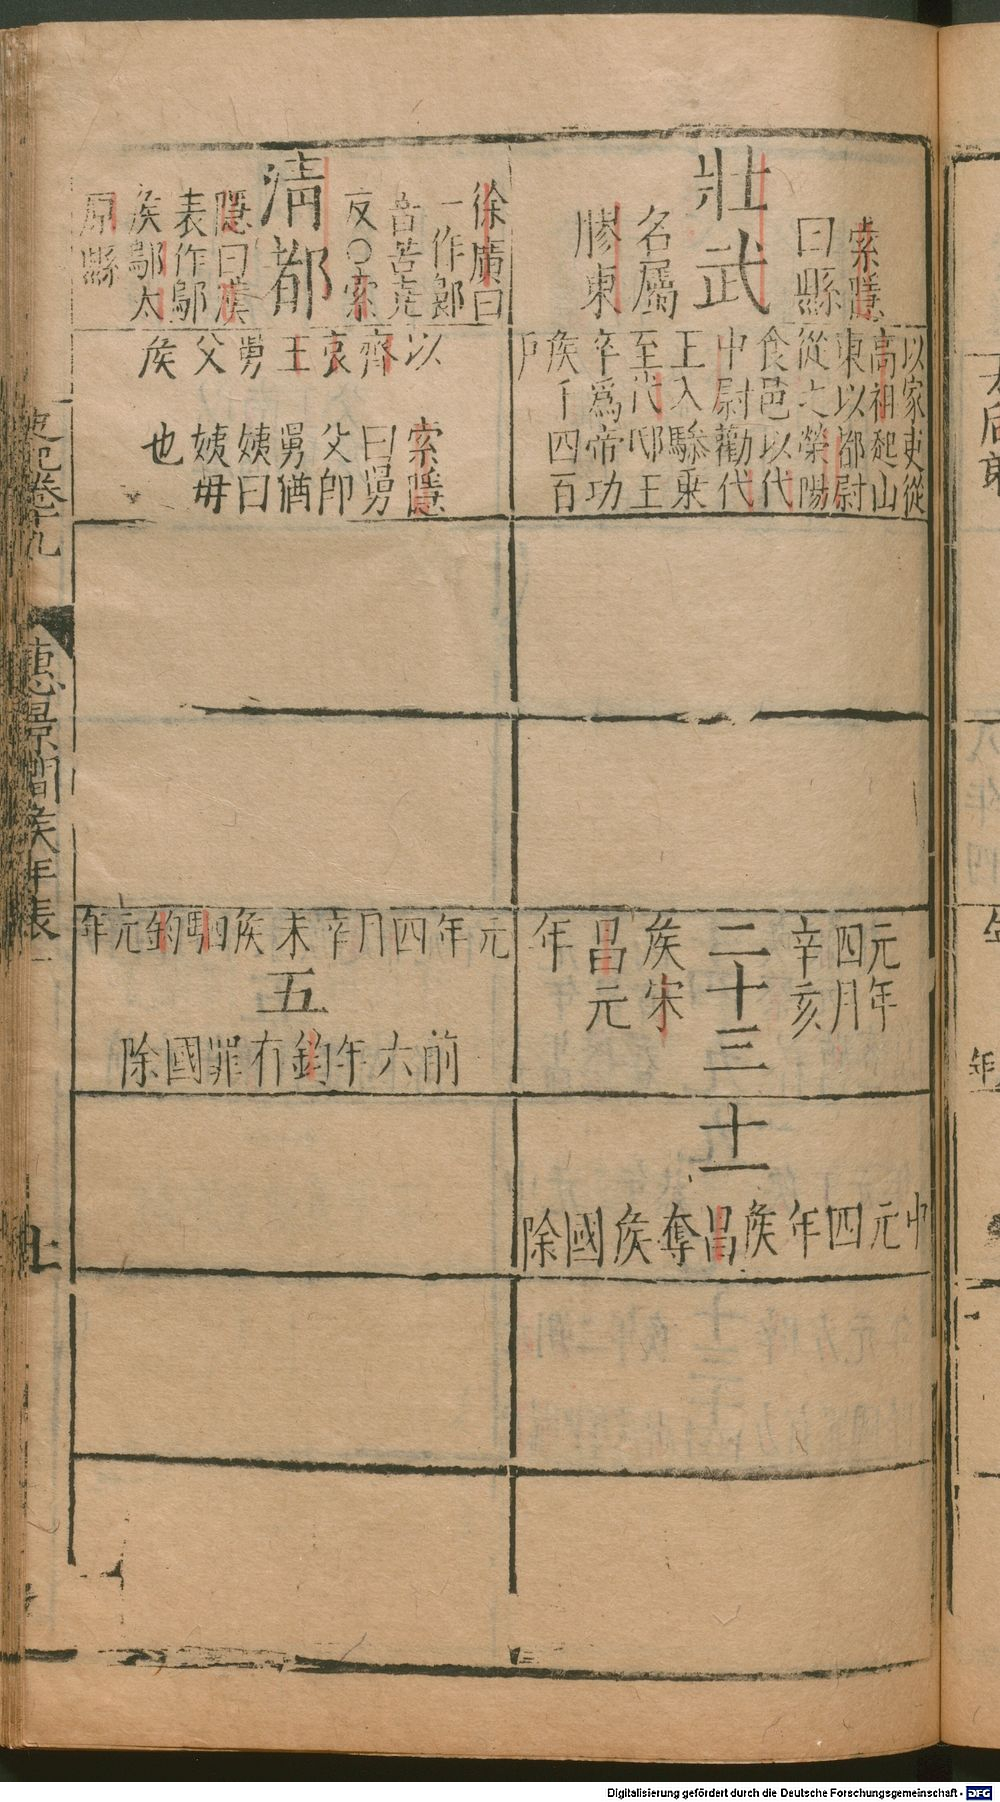 索隱
曰縣
壯武
名屬
膠東
以家吏從
高祖起山
東以都尉
從之滎陽
食邑以代
中尉勸代
王入驂乘
至代邸王
卒爲帝功
侯千四百
戶
元年
四月
辛亥
二十三
侯宋
昌元
年
十一
中元四年侯昌奪侯國除
徐廣曰
一作鄡
音苦堯
反〇索
清都
隱曰漢
表作鄔
侯鄔太
原縣
以齊哀王舅父侯
索隱
曰舅
父即
舅猶
姨曰
姨母
也
元年四月辛未侯駟鈞元年
五
前六年鈞有罪國除
史記卷十九
惠景間侯年表
七
Digitalisierung gefördert durch die Deutsche Forschungsgemeinschaft - DFG